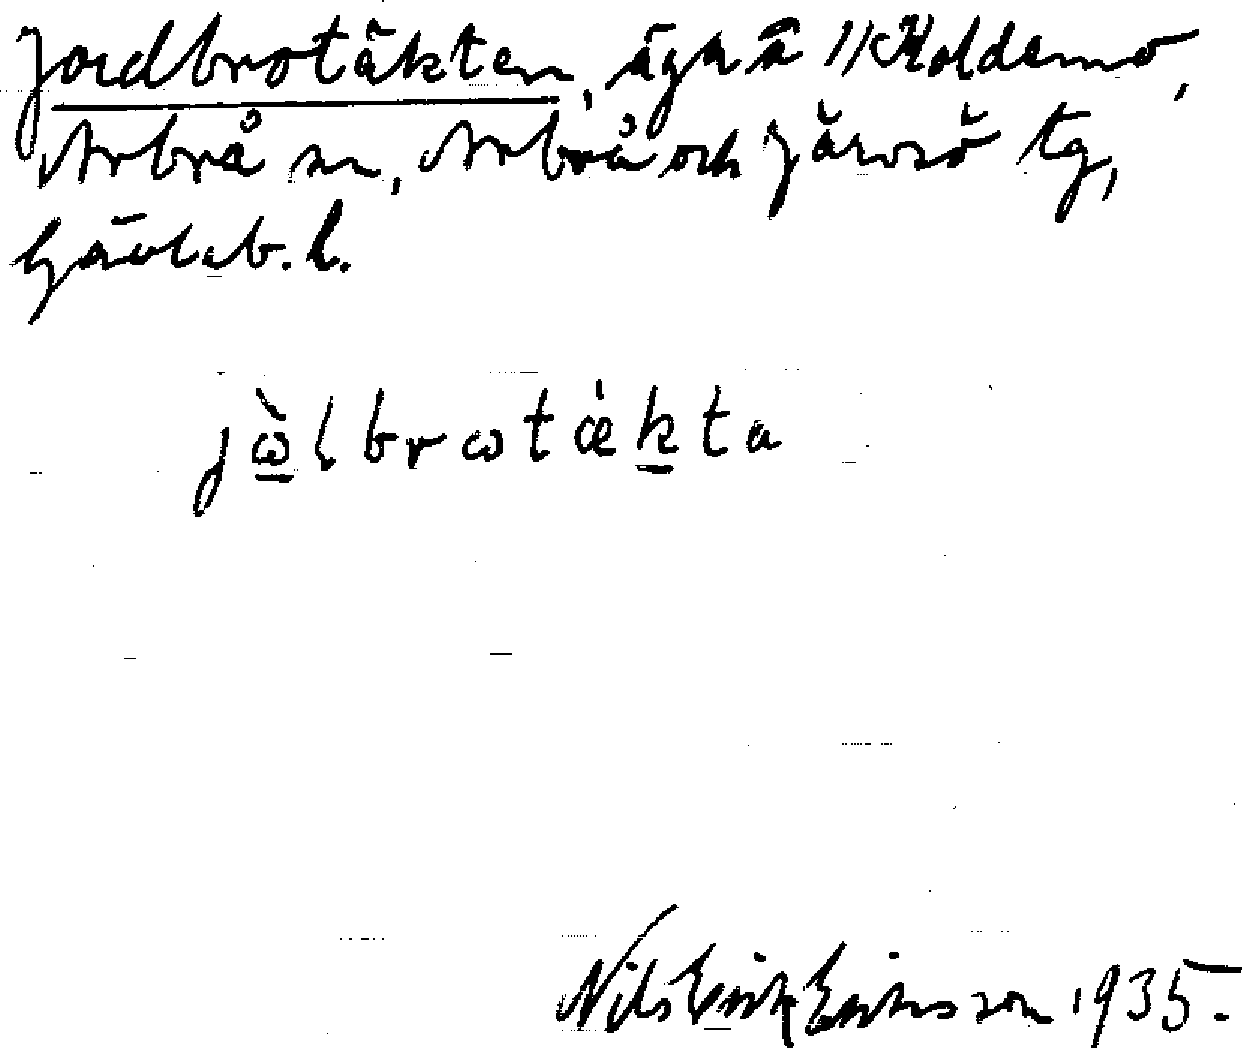 Jordbrotäkten, äga å 11 Koldemo,
Arbrå sn, Arbrå och Järvsö tg,
Gävleb. l.
jὼ̲lbrωtǽk̲ta
Nils Erik Eriksson 1935.